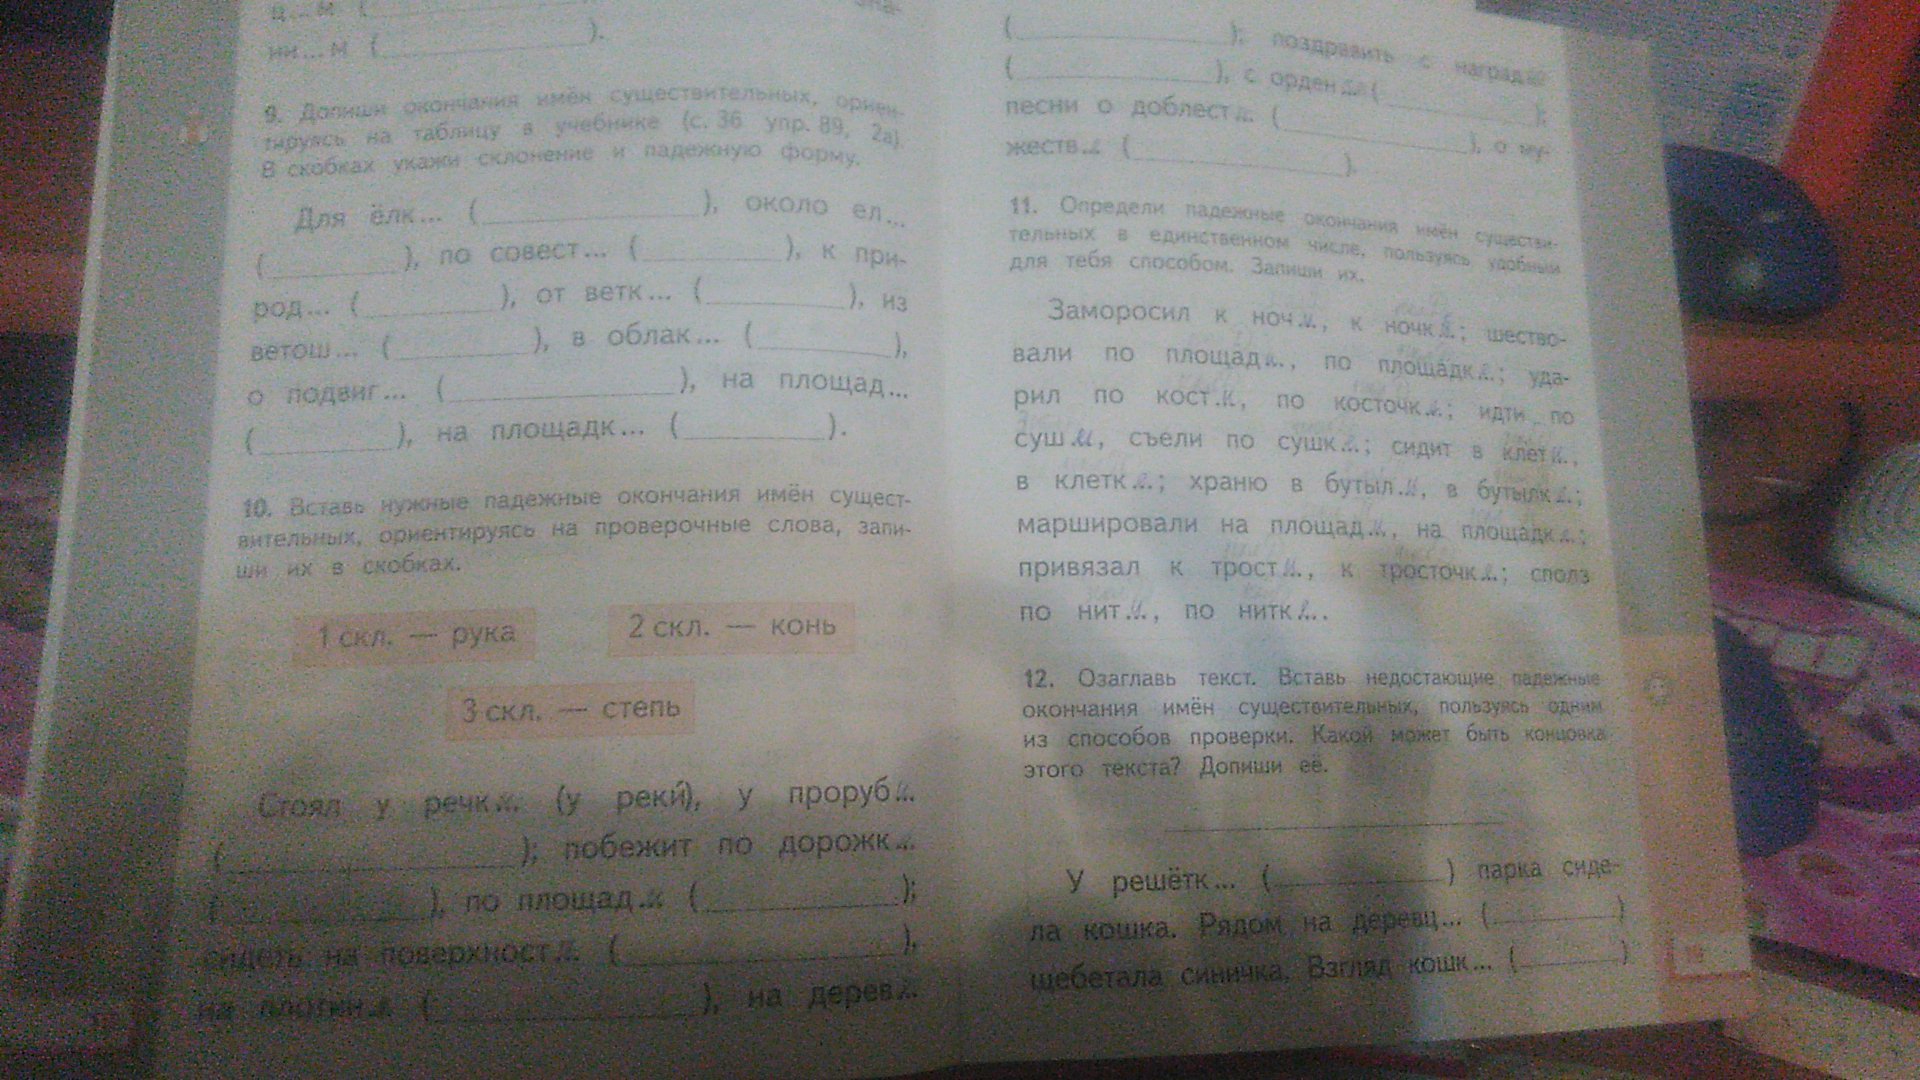 ни...м (            ).
9. Допиши окончания имён существительных, ориен-
тируясь на таблицу в учебнике (с. 36 упр. 89, 2а).
В скобках укажи склонение и падежную форму.
Для ёлк... (            ), около ел...
(            ), по совест... (            ), к при-
род... (            ), от ветк... (            ), из
ветош... (            ), в облак... (            ),
о подвиг... (            ), на площад...
(            ), на площадк... (            ).
10. Вставь нужные падежные окончания имён сущест-
вительных, ориентируясь на проверочные слова, запи-
ши их в скобках.
1 скл. — рука
2 скл. — конь
3 скл. — степь
Стоял у речки (у реки́), у проруби
(            ); побежит по дорожке
(            ), по площади (            );
сидеть на поверхности (            ),
на плотине (            ), на дереве
(            ); поздравить с
(            ), с (            );
песни о доблести (            ), о му-
жестве (            ).
11. Определи падежные окончания имён существи-
тельных в единственном числе, пользуясь удобным
для тебя способом. Запиши их.
Заморосил к ночи, к ночке; шество-
вали по площади, по площадке; уда-
рил по кости, по косточке; идти по
суши, съели по сушке; сидит в клети,
в клетке; храню в бутыли, в бутылке;
маршировали на площади, на площадке;
привязал к трости, к тросточке; сполз
по нити, по нитке.
12. Озаглавь текст. Вставь недостающие падежные
окончания имён существительных, пользуясь одним
из способов проверки. Какой может быть концовка
этого текста? Допиши её.
У решётк... (            ) парка сиде-
ла кошка. Рядом на деревц... (            )
щебетала синичка. Взгляд кошк... (            )